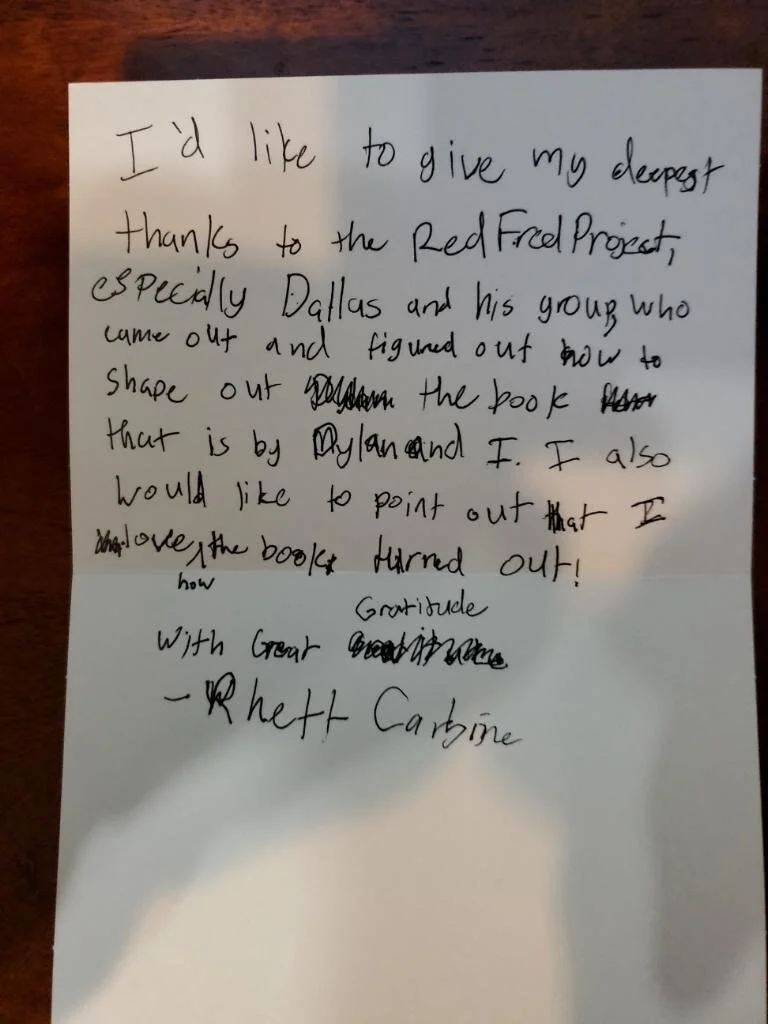 I'd like to give my deepest
thanks to the Red Fred Project,
especially Dallas and his group who
came out and figured out how to
shape out the book
that is by Dylan and I. I also
would like to point out that I
love how the book turned out!
With Great Gratitude
- Rhett Carbine